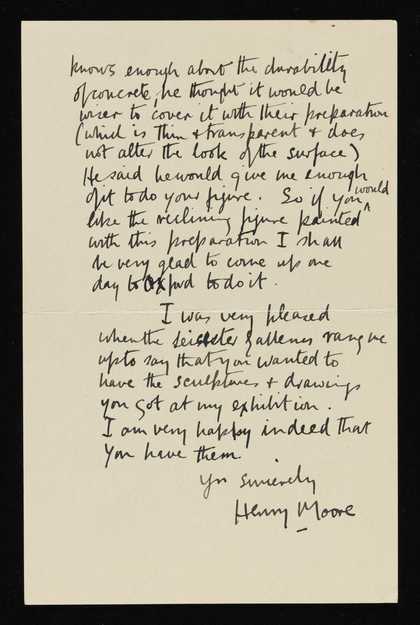 knows enough about the durability
of concrete, he thought it would be
wiser to cover it with their preparation
(which is thin & transparent & does
not alter the look of the surface)
He said he would give me enough
of it to do your figure. So if you would
like the reclining figure painted
with this preparation I shall
be very glad to come up one
day to Oxford to do it.
I was very pleased
when the Leicester Galleries rang me
up to say that you wanted to
have the sculptures & drawings
you got at my exhibition.
I am very happy indeed that
you have them.
Yrs sincerely
Henry Moore